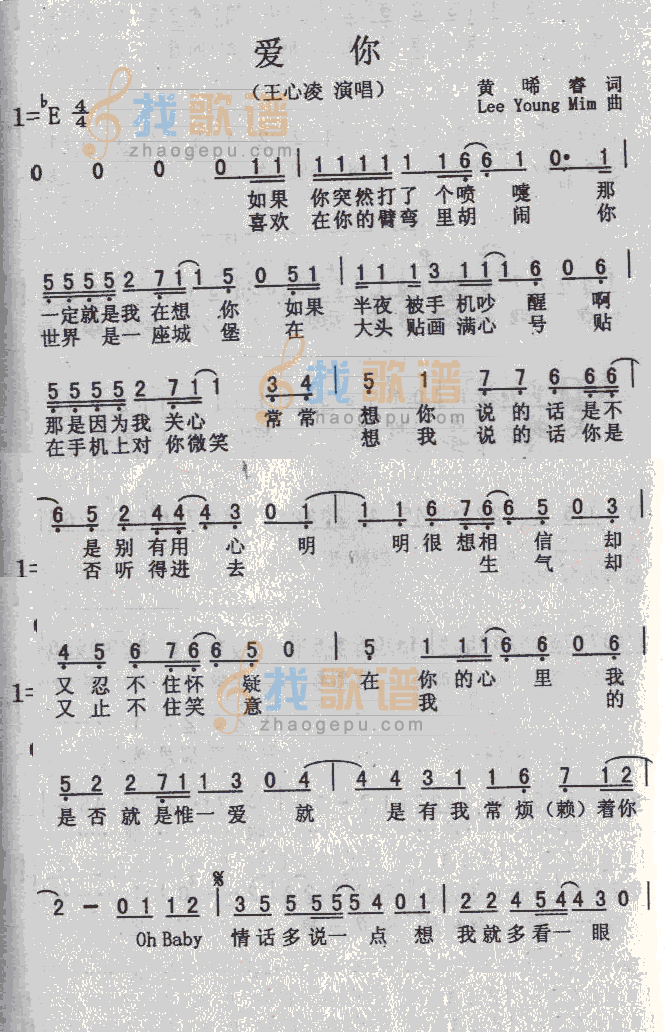 爱 你
(王心凌 演唱)
黄 晞 睿 词
1=♭E 4/4
Lee Young Mim 曲
找歌谱
zhaogepu.com
0 0 0 0 1 1 | 1 1 1 1 1 1 6 6 1 0· 1 |
如果 你突然打了 个喷 嚏 那
喜欢 在你的臂弯 里胡 闹 你
5 5 5 5 2 7 1 1 5 0 5 1 | 1 1 1 3 1 1 1 6 0 6 |
一定就是我 在想 你 如果 半夜 被手 机吵 醒 啊
世界 是一 座城 堡 在 大头 贴画 满心 号 贴
5 5 5 5 2 7 1 1 3 4 | 5 1 7 7 6 6 6
那是因为我 关心 常 常 想 你 说 的 话 是不
在手机上对 你微笑 想 我 说 的 话 你是
找歌谱
6 5 2 4 4 4 3 0 1 | 1 1 6 7 6 6 5 0 3 |
是 别 有用 心 明 明 很 想相 信 却
1= 否 听 得进 去 生 气 却
4 5 6 7 6 6 5 0 | 5 1 1 1 6 6 0 6 |
又 忍 不 住怀 疑 在 你 的 心 里 我
1= 又 止 不 住笑 意 我 的
找歌谱
zhaogepu.com
5 2 2 2 7 1 1 3 0 4 | 4 4 3 1 1 6 7 1 2 |
是 否 就 是惟一 爱 就 是 有 我 常 烦 (赖) 着你
2 － 0 1 1 2 | 3 5 5 5 5 5 4 0 1 | 2 2 4 5 4 4 3 0 |
Oh Baby 情 话 多 说一 点 想 我 就 多 看一 眼